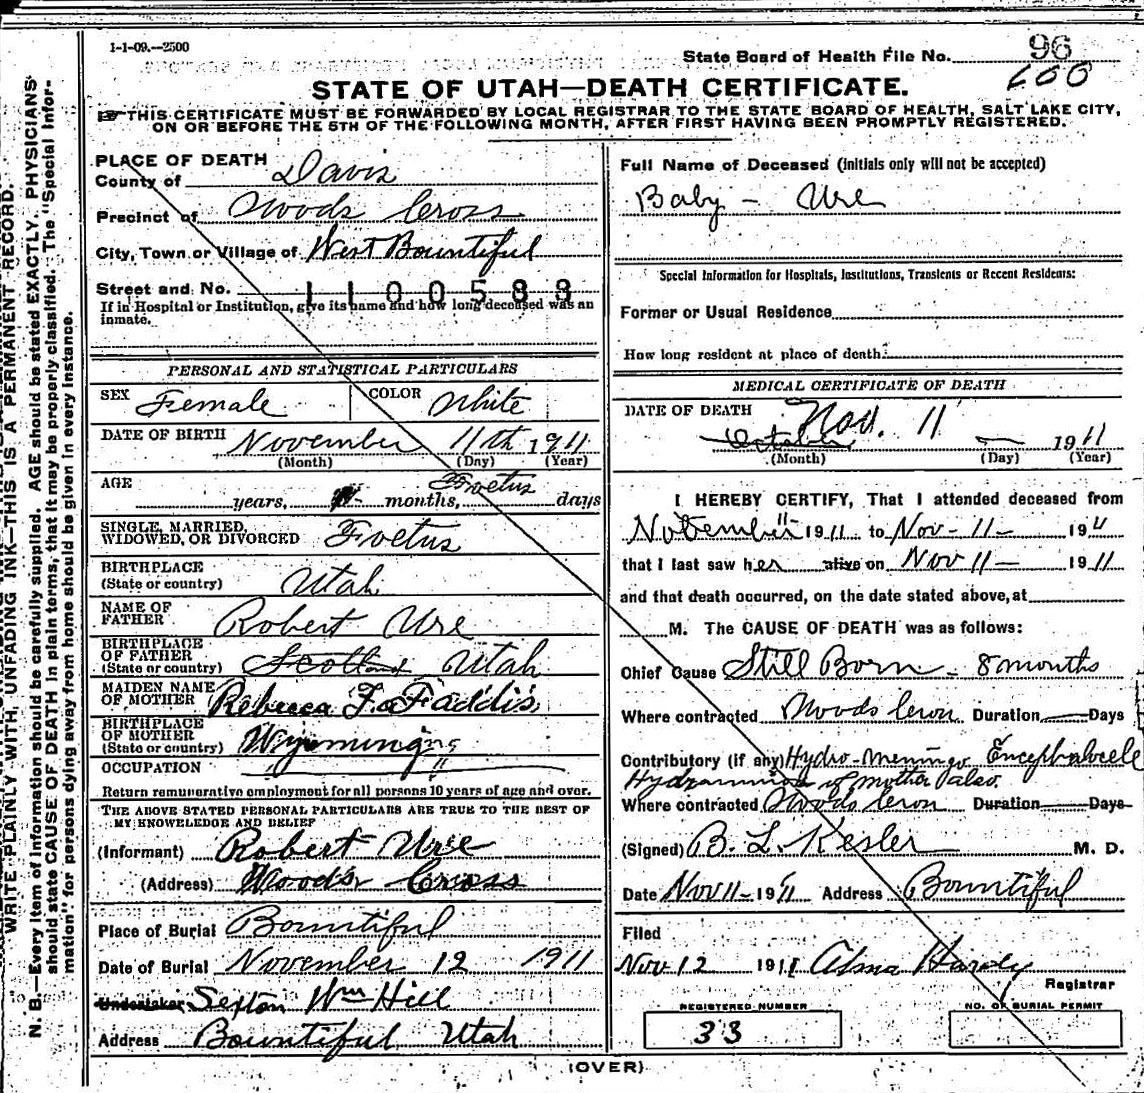 1-1-09.—2500
State Board of Health File No. 96
600
STATE OF UTAH—DEATH CERTIFICATE.
THIS CERTIFICATE MUST BE FORWARDED BY LOCAL REGISTRAR TO THE STATE BOARD OF HEALTH, SALT LAKE CITY,
ON OR BEFORE THE 5TH OF THE FOLLOWING MONTH, AFTER FIRST HAVING BEEN PROMPTLY REGISTERED.
PLACE OF DEATH
County of Davis
Precinct of Woods Cross
City, Town or Village of West Bountiful
Street and No.
1100588
If in Hospital or Institution, give its name and how long deceased was an
inmate.
PERSONAL AND STATISTICAL PARTICULARS
SEX Female COLOR White
DATE OF BIRTH November 11th 1911
(Month) (Day) (Year)
AGE years, months, Foetus days
SINGLE, MARRIED,
WIDOWED, OR DIVORCED Foetus
BIRTHPLACE
(State or country) Utah
NAME OF
FATHER Robert Ure
BIRTHPLACE
OF FATHER
(State or country) Scotland Utah
MAIDEN NAME
OF MOTHER Rebecca F. Faddis
BIRTHPLACE
OF MOTHER
(State or country) Wyoming
OCCUPATION " "
Return remunerative employment for all persons 10 years of age and over.
THE ABOVE STATED PERSONAL PARTICULARS ARE TRUE TO THE BEST OF
MY KNOWELEDGE AND BELIEF
(Informant) Robert Ure
(Address) Woods Cross
Place of Burial Bountiful
Date of Burial November 12 1911
Undertaker Sexton Wm Hill
Address Bountiful Utah
Full Name of Deceased (initials only will not be accepted)
Baby - Ure
Special Information for Hospitals, Institutions, Transients or Recent Residents:
Former or Usual Residence
How long resident at place of death:
MEDICAL CERTIFICATE OF DEATH
DATE OF DEATH Nov. 11
October — 1911
(Month) (Day) (Year)
I HEREBY CERTIFY, That I attended deceased from
November 11 1911 to Nov-11- 1911
that I last saw her alive on Nov 11- 1911
and that death occurred, on the date stated above, at
M. The CAUSE OF DEATH was as follows:
Chief Cause Still Born - 8 months
Where contracted Woods Cross Duration — Days
Contributory (if any) Hydro-Meningo Encephalocele
Hydramnios of mother also.
Where contracted Woods Cross Duration — Days
(Signed) B. L. Kesler M. D.
Date Nov 11- 1911 Address Bountiful
Filed
Nov 12 1911 Alma Hardy
Registrar
REGISTERED NUMBER
33
NO. OF BURIAL PERMIT
(OVER)
WRITE PLAINLY WITH UNFADING INK—THIS IS A PERMANENT RECORD.
N. B.—Every item of information should be carefully supplied. AGE should be stated EXACTLY. PHYSICIANS
should state CAUSE OF DEATH in plain terms, that it may be properly classified. The "Special Infor-
mation" for persons dying away from home should be given in every instance.